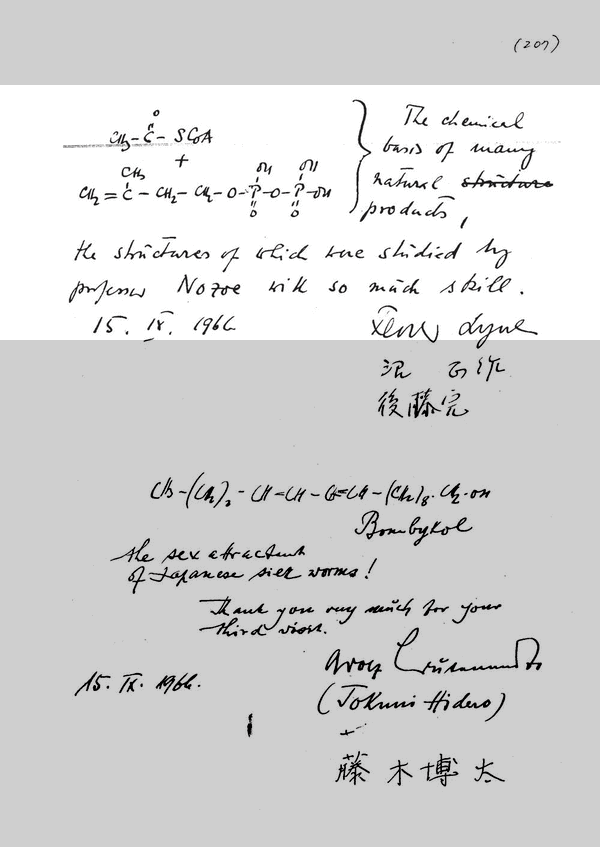 (207)
O
CH3-C-SCoA
+
CH3 OH OH
CH2=C-CH2-CH2-O-P-O-P-OH
O O
The chemical
basis of many
natural structure
products,
the structures of which were studied by
professor Nozoe with so much skill.
15. IX. 1966
Lynen
作
後藤完
CH3-(CH2)2-CH=CH-CH=CH-(CH2)8-CH2-OH
Bombykol
the sex attractant
of Japanese silk worms!
Thank you very much for your
third visit.
15. IX. 1966.
(Tokuni Hidero)
藤木博太